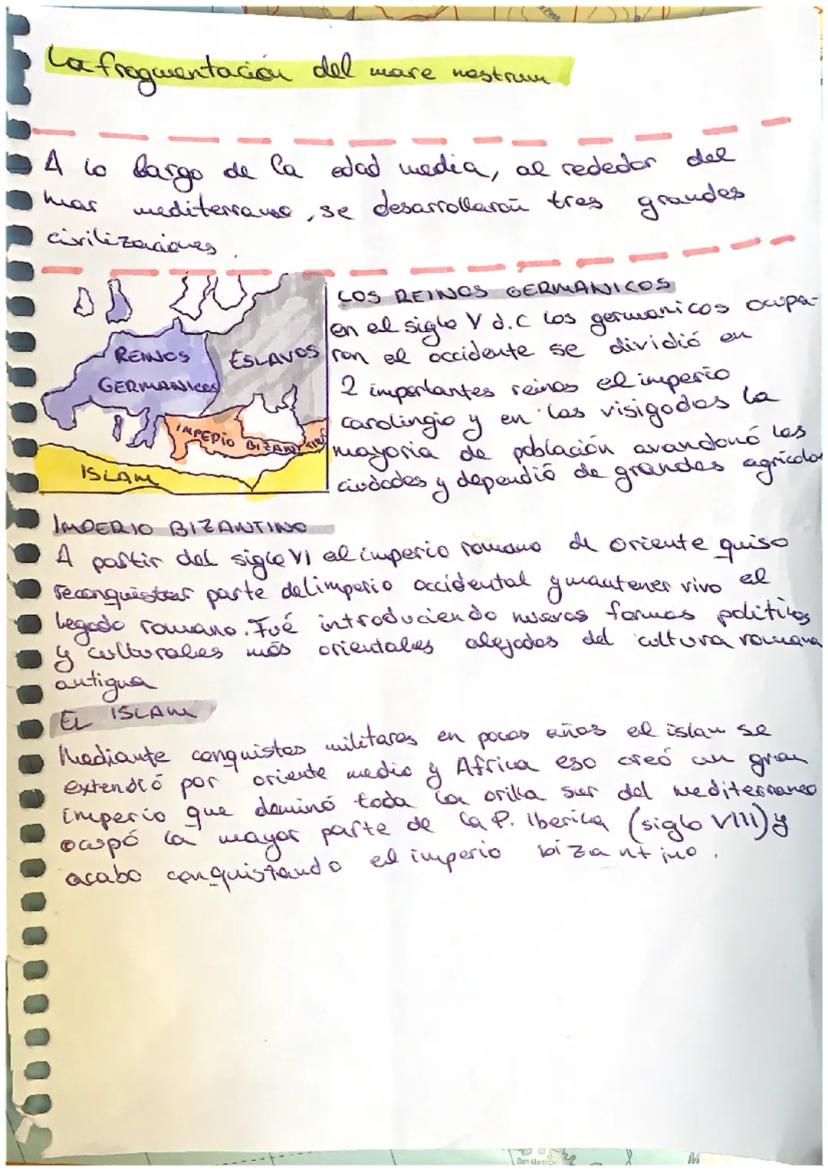 La fragmentación del mare nostrum
A lo largo de la edad media, al rededor del
mar mediterraneo, se desarrollaron tres grandes
civilizaciones.
LOS REINOS GERMANICOS
en el siglo V d.C los germanicos ocupa-
ron el occidente se dividió en
2 importantes reinos el imperio
carolingio y en los visigodos la
mayoria de población avandonó las
ciudades y dependió de grandes agricolas
REINOS
GERMANICOS
ESLAVOS
IMPERIO BIZANTINO
ISLAM
IMPERIO BIZANTINO
A partir del siglo VI el imperio romano de oriente quiso
reconquistar parte del imperio occidental y mantener vivo el
legado romano. Fué introduciendo nuevas formas politicas
y culturales más orientales alejadas del cultura romana
antigua
EL ISLAM
Mediante conquistas militares en pocos años el islam se
extendió por oriente medio y Africa eso creó un gran
imperio que dominó toda la orilla sur del mediterraneo
ocupó la mayor parte de la P. Iberica (siglo VIII) y
acabo conquistando el imperio bizantino.